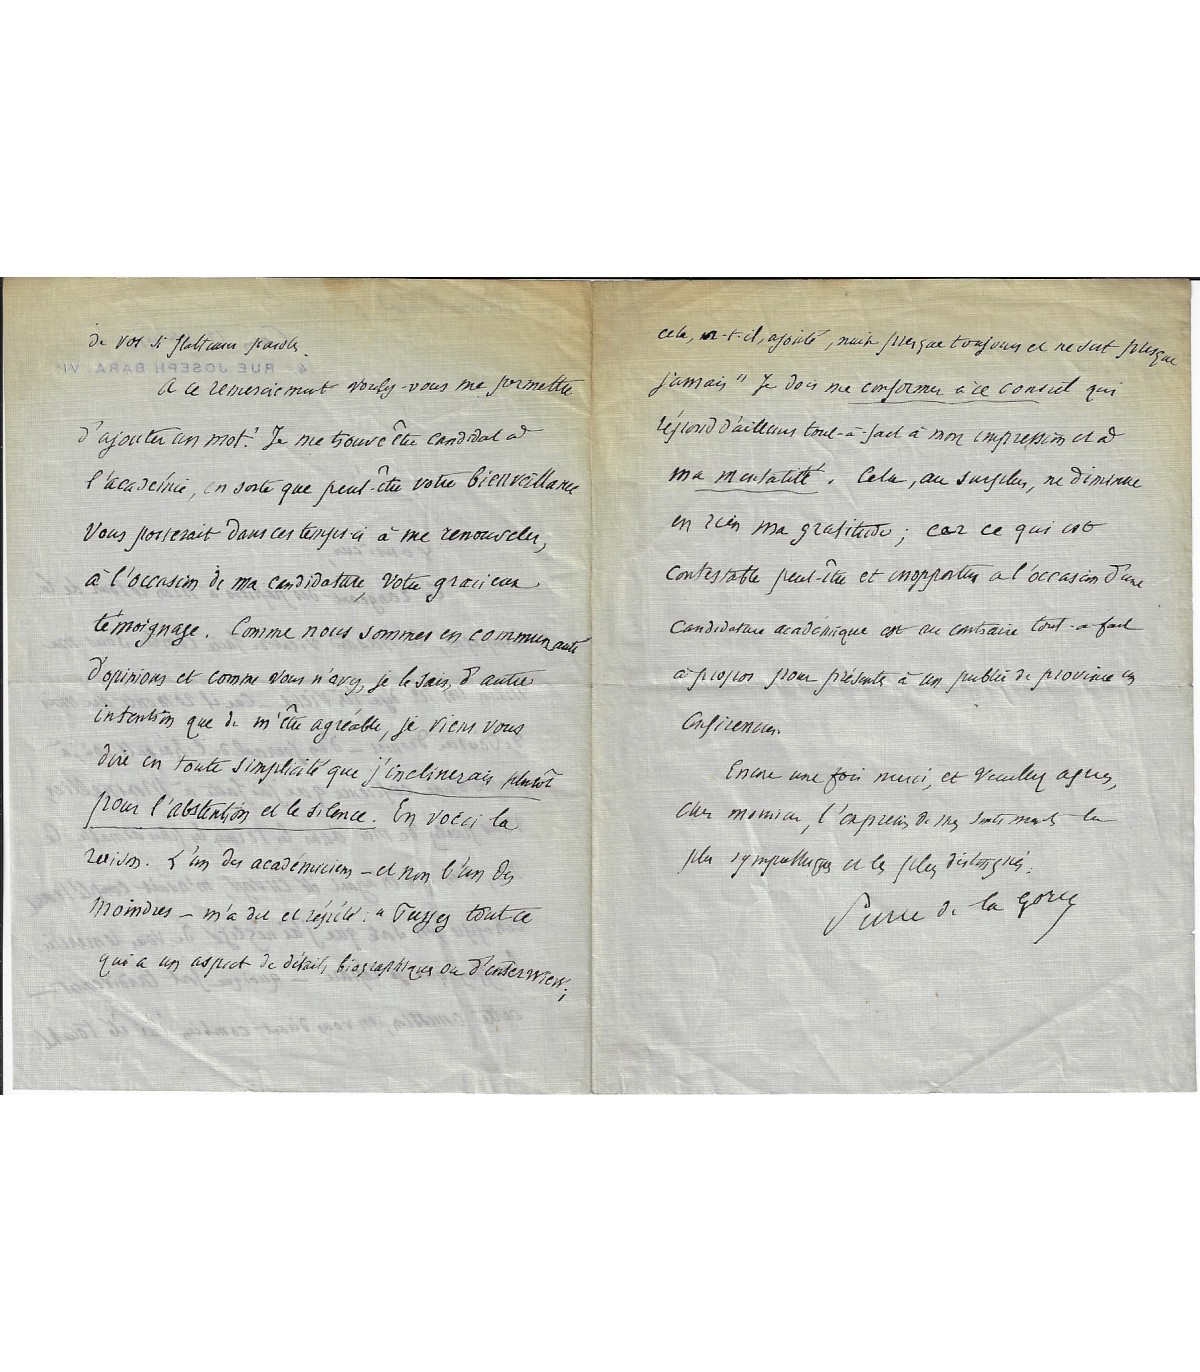 de vos si flatteuses paroles.
4, RUE JOSEPH BARA. VIe
A ce remerciement voulez-vous me permettre
d'ajouter un mot? Je me trouve être candidat à
l'académie, en sorte que peut-être votre bienveillance
vous porterait dans ces temps-ci à me renouveler,
à l'occasion de ma candidature, votre gracieux
témoignage. Comme nous sommes en communauté
d'opinions et comme vous n'avez, je le sais, d'autre
intention que de m'être agréable, je viens vous
dire en toute simplicité que j'inclinerais plutôt
pour l'abstention et le silence. En voici la
raison. L'un des académiciens – et non l'un des
moindres – m'a dit et répété: "Fuyez tout ce
qui a un aspect de détails biographiques ou d'interview;
cela, m'a-t-il, ajouté, nuit presque toujours et ne sert presque
jamais" Je dois me conformer à ce conseil qui
répond d'ailleurs tout-à-fait à mon impression et à
ma mentalité. Cela, au surplus, ne diminue
en rien ma gratitude; car ce qui est
contestable peut-être et inopportun à l'occasion d'une
candidature académique est au contraire tout-à-fait
à propos pour présenter à un public de province un
conférencier.
Encore une fois merci, et veuillez agréer,
cher monsieur, l'expression de mes sentiments les
plus sympathiques et les plus distingués.
Pierre de la Gorce